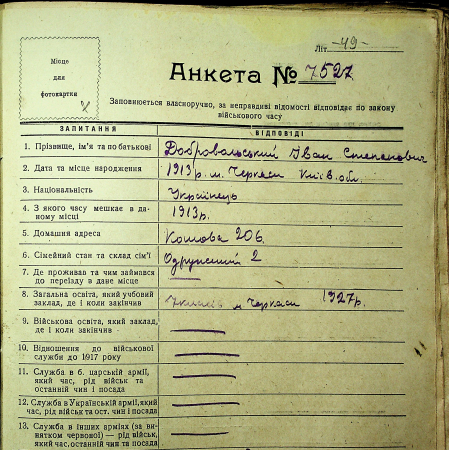 Літ -49-
Місце
для
фотокартки
Анкета № 7527
Заповнюється власноручно, за неправдиві відомості відповідає по закону
військового часу
ЗАПИТАННЯ ВІДПОВІДІ
1. Прізвище, ім'я та по батькові Добровольський Іван Степанович
2. Дата та місце народження 1913 р. м. Черкаси Київ. обл.
3. Національність Українець
4. З якого часу мешкає в да-
ному місці 1913 р.
5. Домашня адреса 206.
6. Сімейний стан та склад сім'ї Одружений 2
7. Де проживав та чим займався
до переїзду в дане місце —
8. Загальна освіта, який учбовий
заклад, де і коли закінчив 7 класів м. Черкаси 1927 р.
9. Військова освіта, який заклад,
де і коли закінчив —
10. Відношення до військової
служби до 1917 року —
11. Служба в б. царській армії,
який час, рід військ та
останній чин і посада —
12. Служба в Українській армії, який
час, рід військ та ост. чин і посада —
13. Служба в інших арміях (за ви-
нятком червоної) — рід військ,
який час, останній чин та посада —